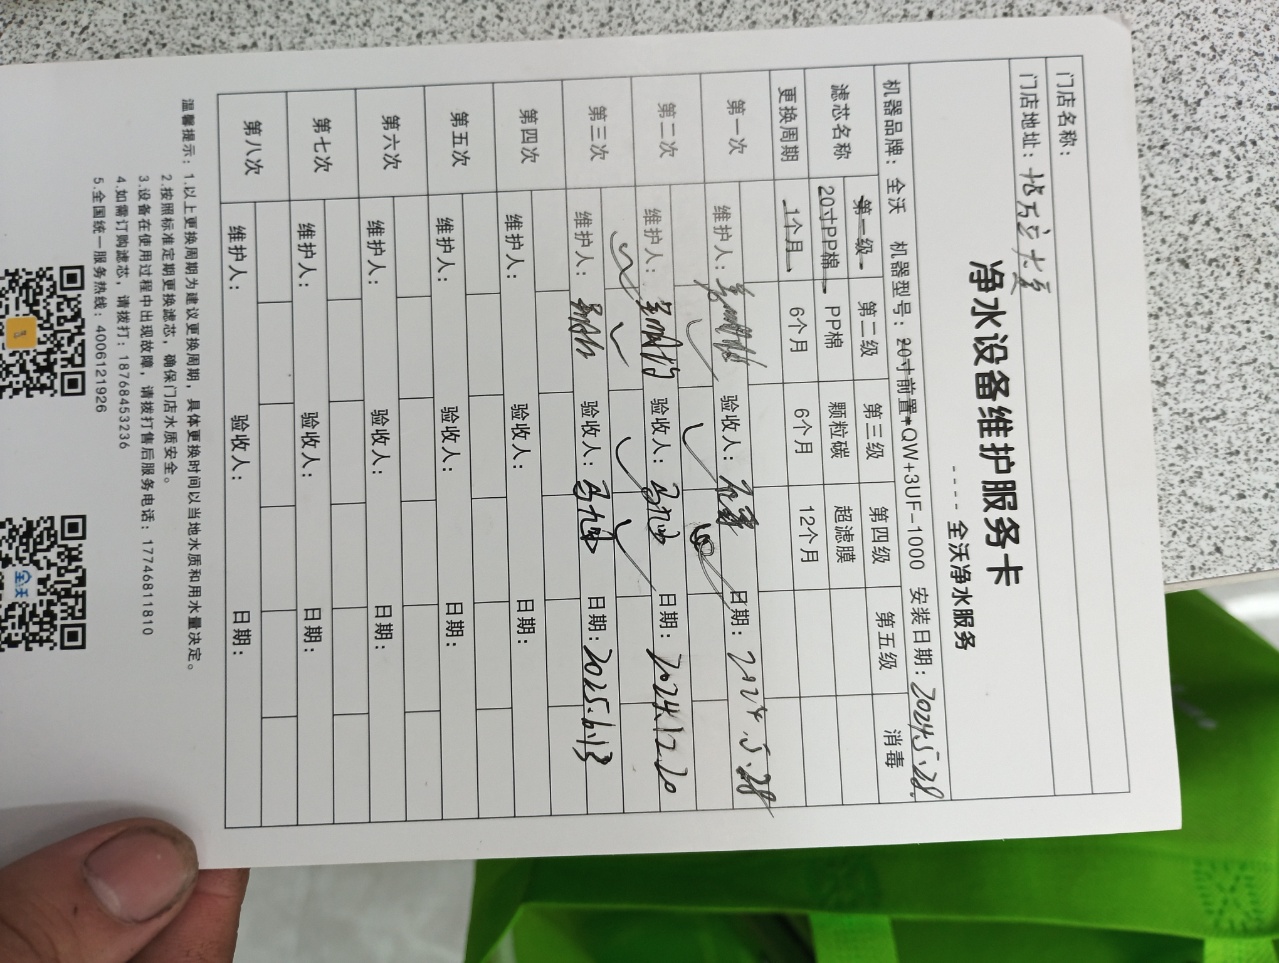 门店名称：
门店地址：
净水设备维护服务卡
---- 全沃净水服务
机器品牌：全沃 机器型号：20寸前置+QW+3UF-1000 安装日期：2024.5.28.
滤芯名称 第一级 第二级 第三级 第四级 第五级 消毒
20寸PP棉 PP棉 颗粒碳 超滤膜
更换周期 1个月 6个月 6个月 12个月
第一次
维护人： 验收人： 日期：2024.5.28
第二次
维护人： 验收人： 日期：2024.12.20
第三次
维护人： 验收人： 日期：2025.6.13
第四次
维护人： 验收人： 日期：
第五次
维护人： 验收人： 日期：
第六次
维护人： 验收人： 日期：
第七次
维护人： 验收人： 日期：
第八次
维护人： 验收人： 日期：
温馨提示：1.以上更换周期为建议更换周期，具体更换时间以当地水质和用水量决定。
2.按照标准定期更换滤芯，确保门店水质安全。
3.设备在使用过程中出现故障，请拨打售后服务电话：17746811810
4.如需订购滤芯，请拨打：18768453236
5.全国统一服务热线：4006121926
全沃